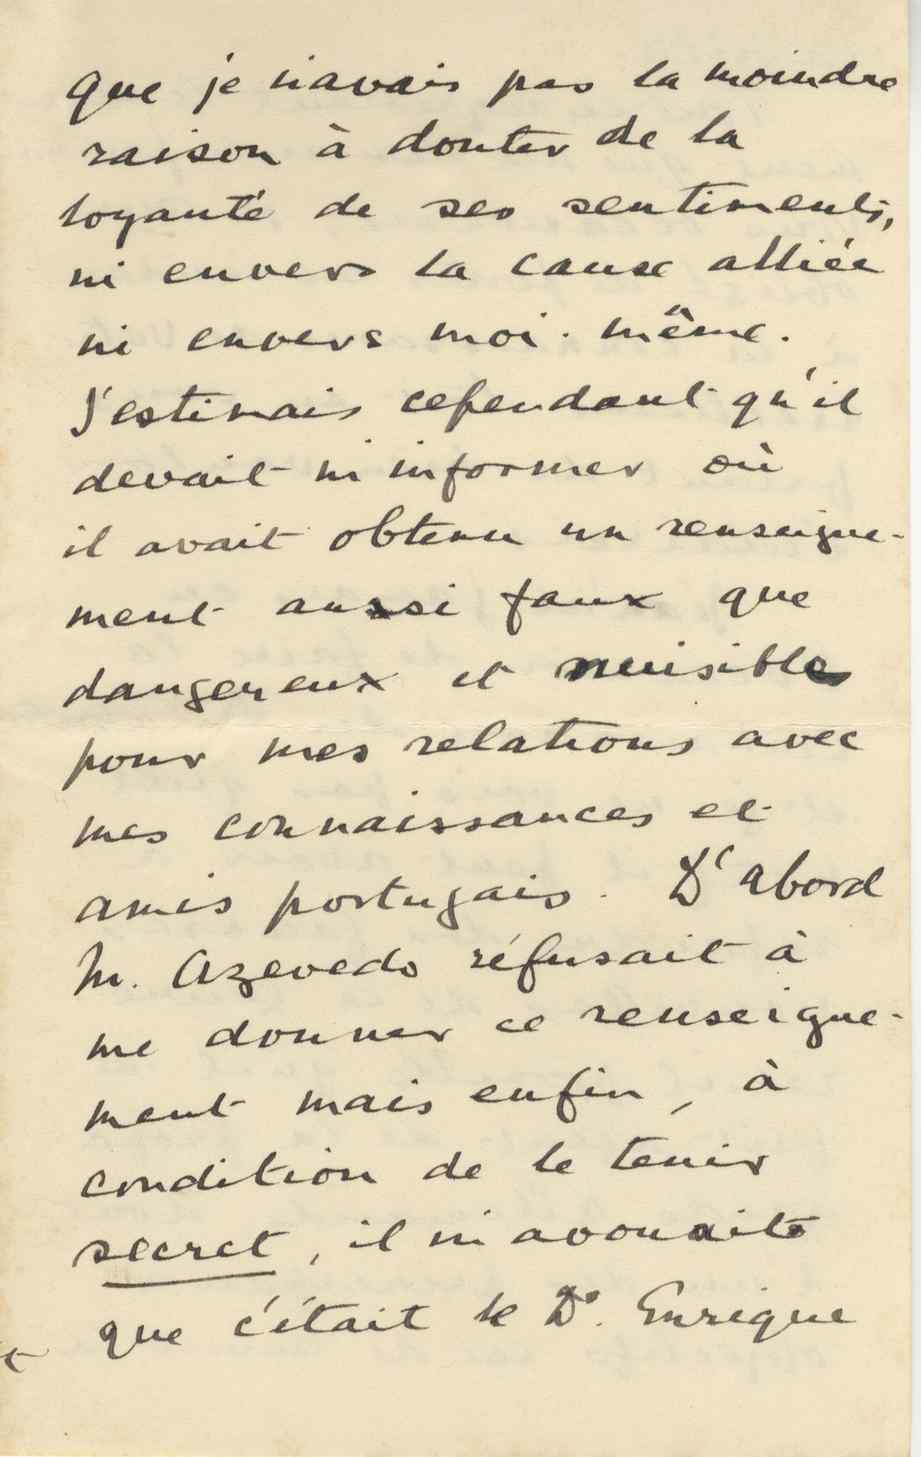 que je n'avais pas la moindre
raison à douter de la
loyauté de ses sentiments,
ni envers la cause alliée
ni envers moi-même.
J'estimais cependant qu'il
devait m'informer où
il avait obtenu un renseigne-
ment aussi faux que
dangereux et nuisible
pour mes relations avec
mes connaissances et
amis portugais. D'abord
M. Azevedo réfusait à
me donner ce renseigne-
ment mais enfin, à
condition de le tenir
secret, il m'avouait
que c'était le Dº. Enrique